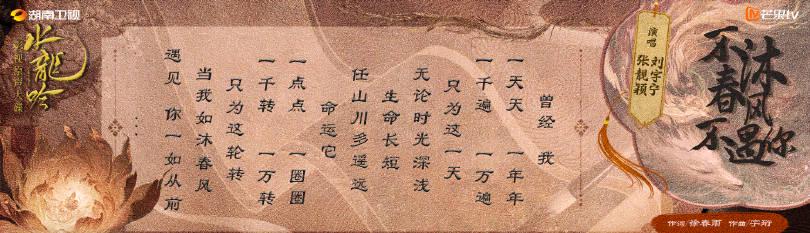 湖南卫视
芒果tv
水龍吟
影视原声大碟
不沐春风不遇你
演唱
刘宇宁
张靓颖
曾经 我
一天天 一年年
一千遍 一万遍
只为这一天
无论时光深浅
生命长短
任山川多遥远
命运它
一点点 一圈圈
一千转 一万转
只为这轮转
当我如沐春风
遇见 你一如从前
作词/徐春雨 作曲/宇珩